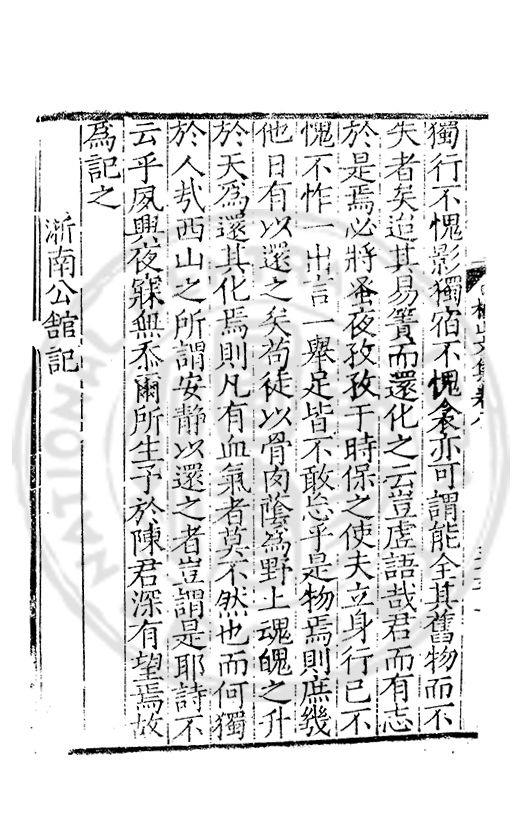 獨行不愧影獨宿不愧衾亦可謂能全其舊物而不
失者矣迨其易簀而還化之云豈虛語哉君而有志
於是焉必將蚤夜孜孜于時保之使夫立身行已不
愧不怍一出言一舉足皆不敢忘乎是物焉則庶幾
他日有以還之矣苟徒以骨肉蔭為野上魂魄之升
於天為還其化焉則凡有血氣者莫不然也而何獨
於人㢤西山之所謂安靜以還之者豈謂是耶詩不
云乎夙興夜寐無忝爾所生予於陳君深有望焉故
為記之
浙南公館記